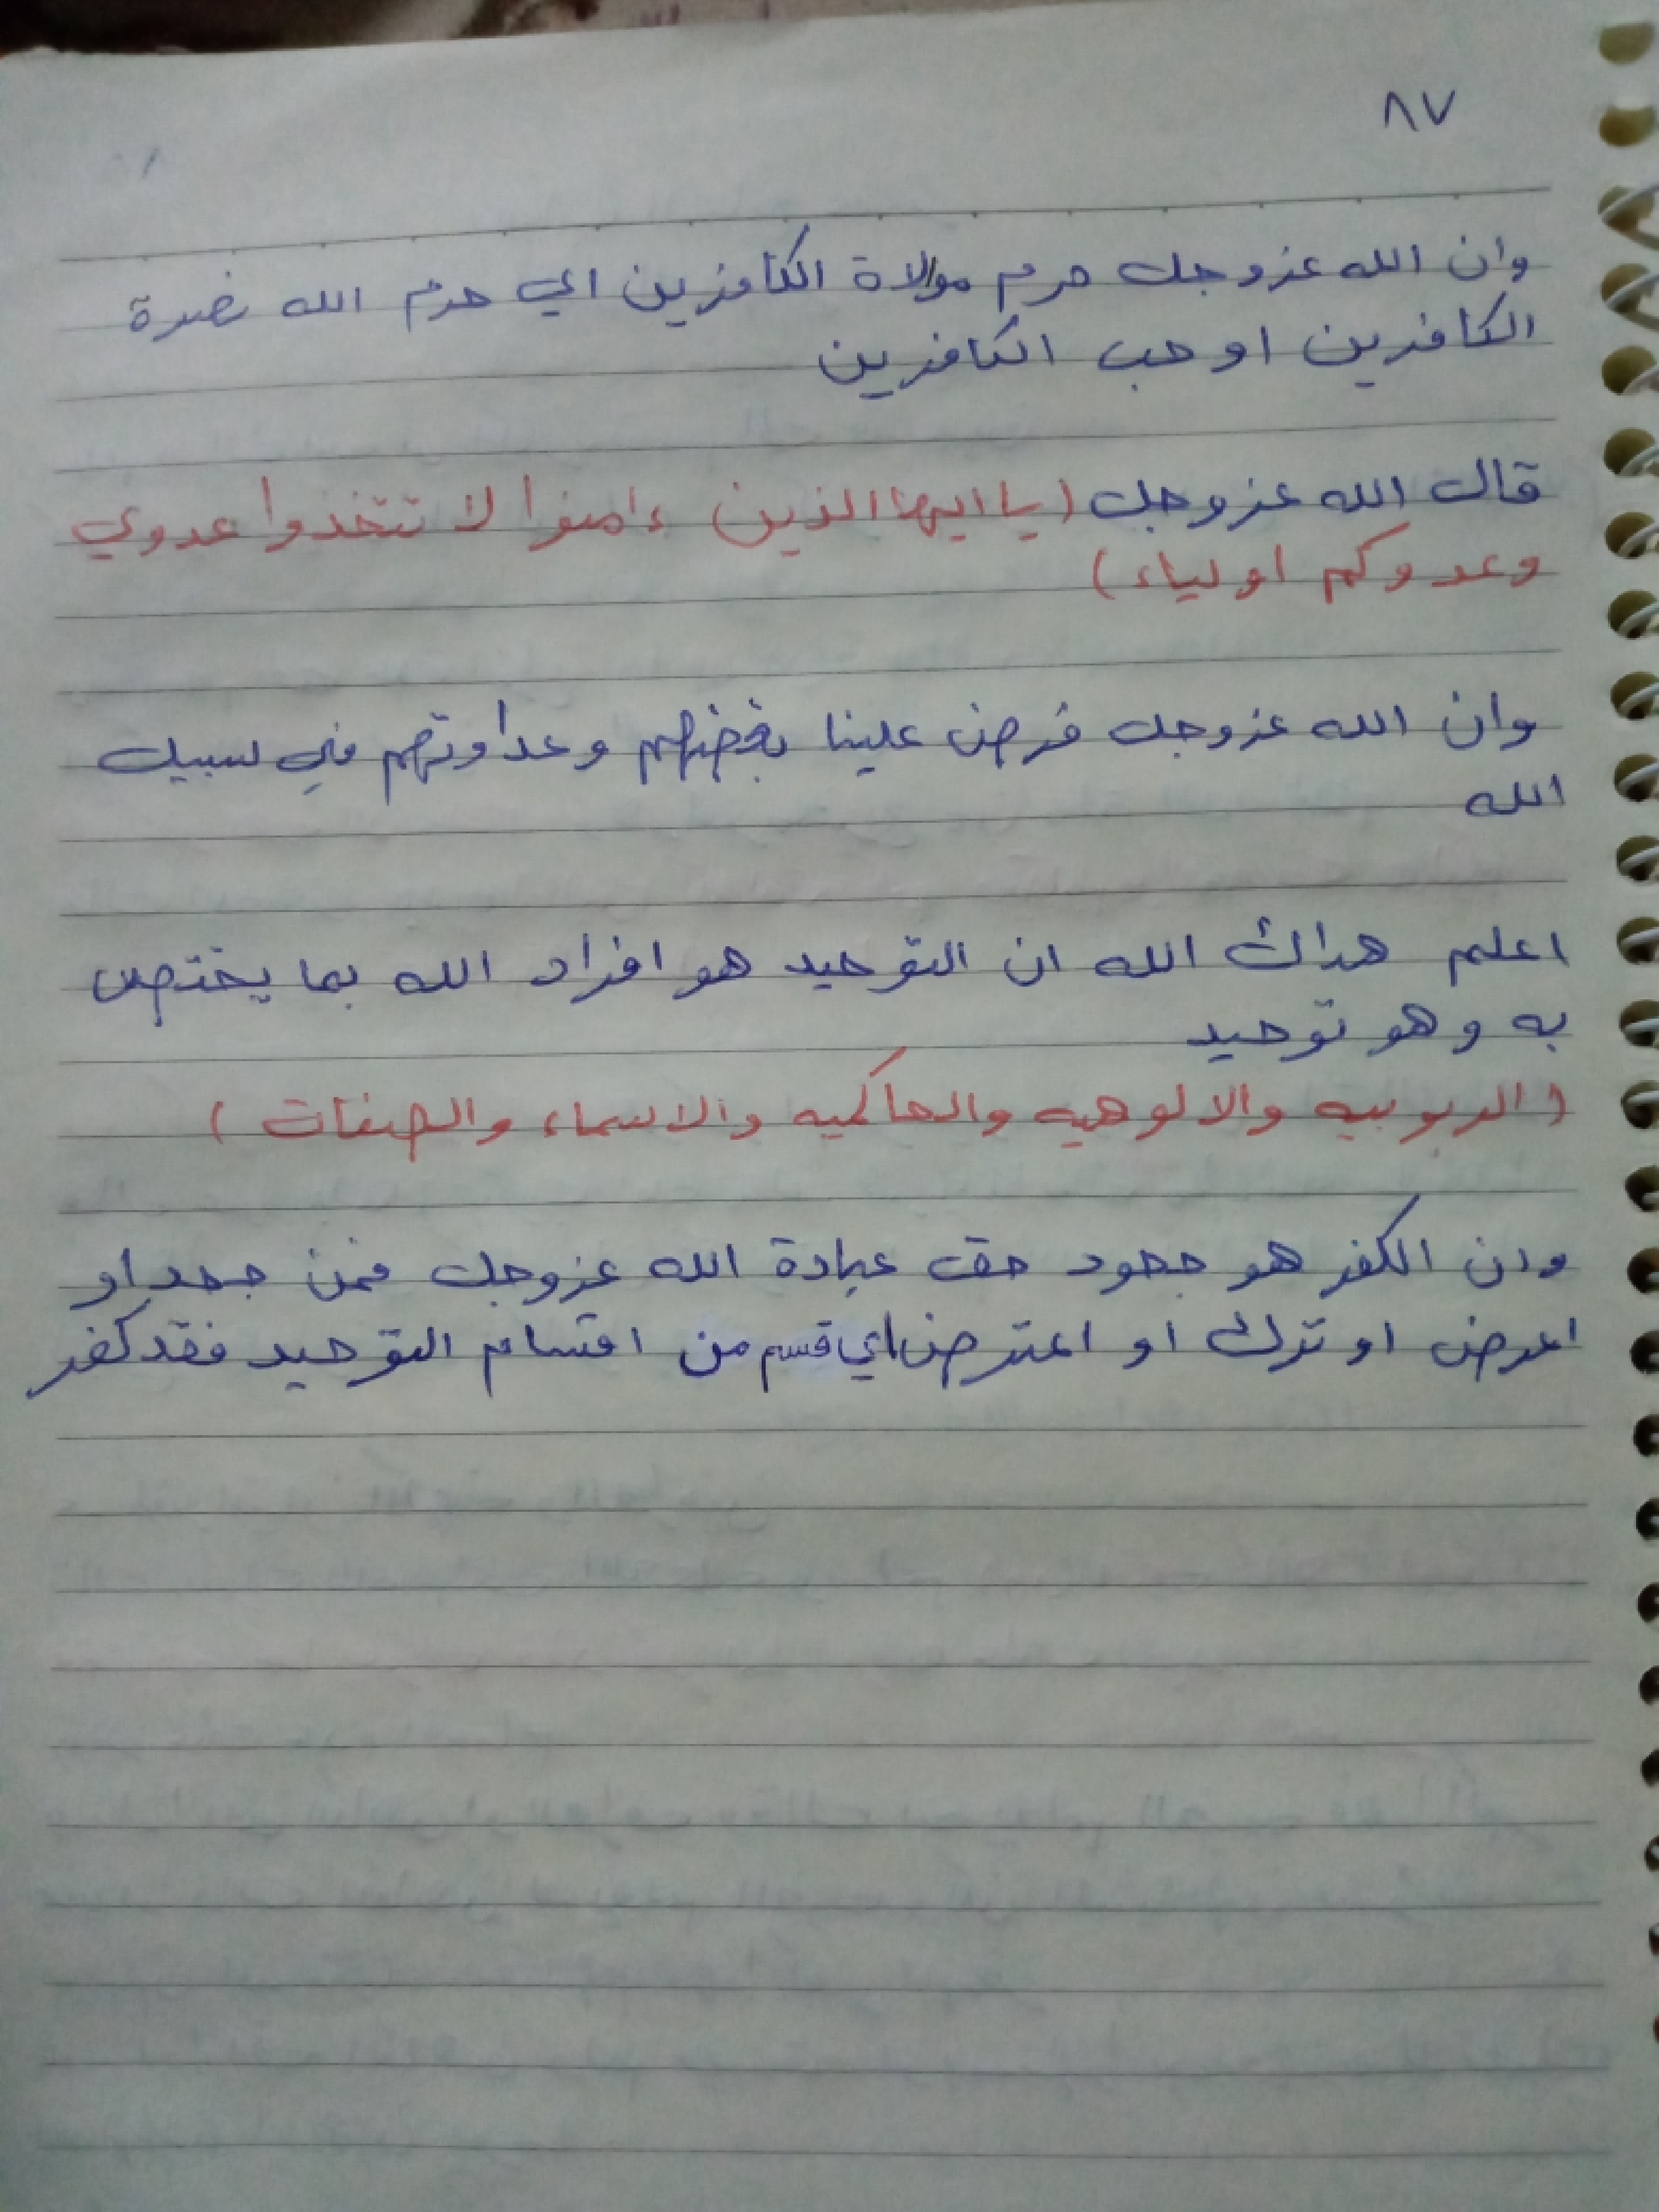 ٨٧
وان الله عزوجل حرم موالاة الكافرين اي حرم الله نصرة
الكافرين او حب الكافرين
قال الله عزوجل (يا ايها الذين ءامنوا لا تتخذوا عدوي
وعدوكم اولياء)
وان الله عزوجل فرض علينا بغضهم وعداوتهم في سبيل
الله
اعلم هداك الله ان التوحيد هو افراد الله بما يختص
به وهو توحيد
(الربوبيه والالوهيه والحاكميه والاسماء والصفات)
وان الكفر هو جحود حق عبادة الله عزوجل فمن جحد او
اعرض او ترك او اعترض اي قسم من اقسام التوحيد فقد كفر